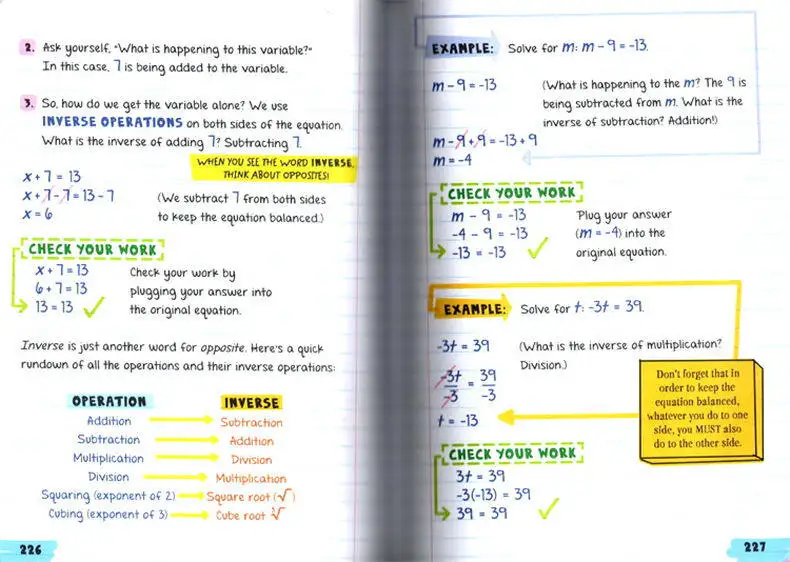 2. Ask yourself, "What is happening to this variable?"
In this case, 7 is being added to the variable.
3. So, how do we get the variable alone? We use
INVERSE OPERATIONS on both sides of the equation.
What is the inverse of adding 7? Subtracting 7.
WHEN YOU SEE THE WORD INVERSE,
THINK ABOUT OPPOSITES!
x + 7 = 13
x + 7 - 7 = 13 - 7 (We subtract 7 from both sides
x = 6 to keep the equation balanced.)
CHECK YOUR WORK
x + 7 = 13 Check your work by
6 + 7 = 13 plugging your answer into
13 = 13 ✓ the original equation.
Inverse is just another word for opposite. Here's a quick
rundown of all the operations and their inverse operations:
OPERATION INVERSE
Addition → Subtraction
Subtraction → Addition
Multiplication → Division
Division → Multiplication
Squaring (exponent of 2) → Square root (√)
Cubing (exponent of 3) → Cube root ∛
226
EXAMPLE: Solve for m: m - 9 = -13.
m - 9 = -13 (What is happening to the m? The 9 is
being subtracted from m. What is the
inverse of subtraction? Addition!)
m - 9 + 9 = -13 + 9
m = -4
CHECK YOUR WORK
m - 9 = -13 Plug your answer
-4 - 9 = -13 (m = -4) into the
-13 = -13 ✓ original equation.
EXAMPLE: Solve for t: -3t = 39.
-3t = 39 (What is the inverse of multiplication?
Division.)
-3t/-3 = 39/-3
t = -13
Don't forget that in
order to keep the
equation balanced,
whatever you do to one
side, you MUST also
do to the other side.
CHECK YOUR WORK
3t = 39
-3(-13) = 39
39 = 39 ✓
227